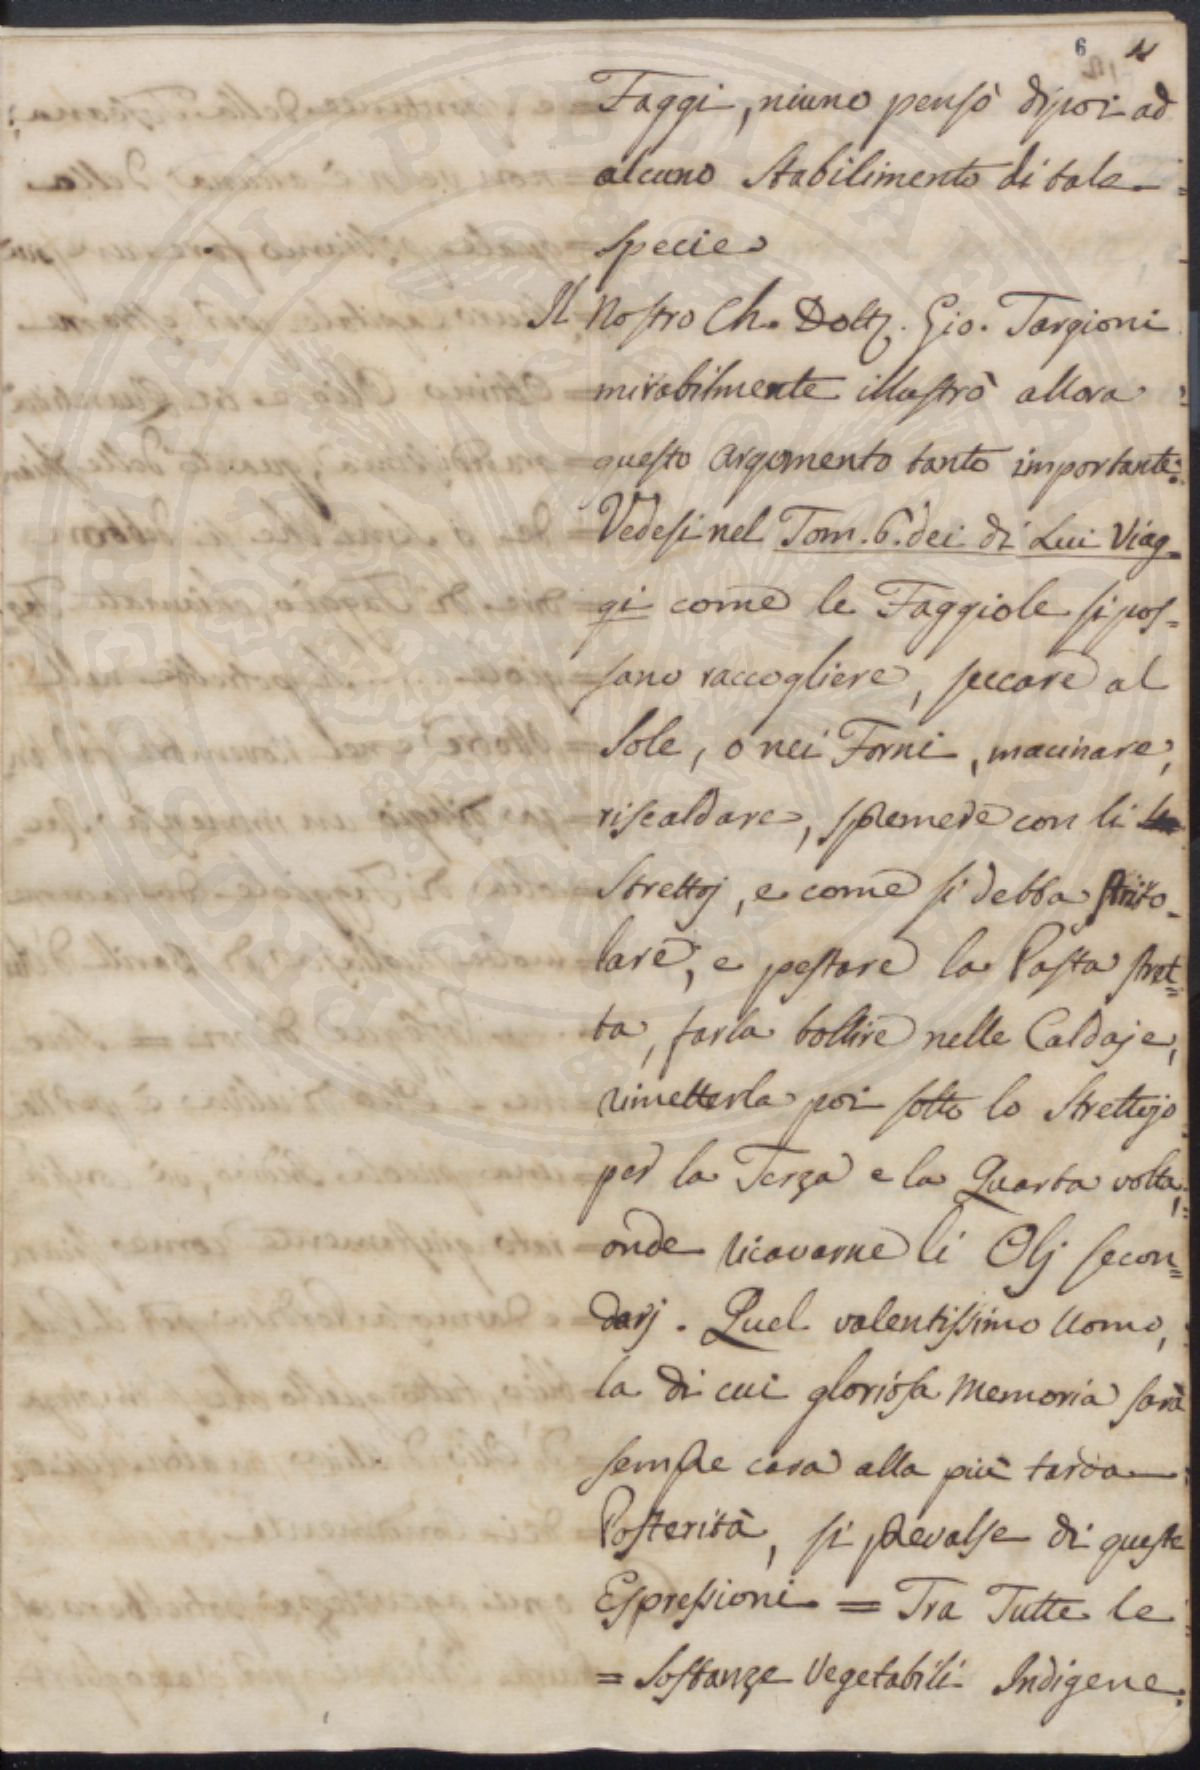 6
Faggi, niuno pensò dipoi ad
alcuno Stabilimento di tale
specie
Il Nostro Ch. Dott. Gio. Targioni
mirabilmente illustrò allora
questo argomento tanto importante.
Vedesi nel Tom. 6. dei di Lui Viag=
gi come le Faggiole si pos=
sano raccogliere, seccare al
Sole, o nei Forni, macinare,
riscaldare, spremere con li
Strettoj, e come si debba strito=
lare, e pestare la Pasta stret=
ta, farla bollire nelle Caldaje,
rimetterla poi sotto lo Strettojo
per la Terza e la Quarta volta,
onde ricavarne li Olj secon=
darj. Quel valentissimo Uomo,
la di cui gloriosa Memoria sarà
sempre cara alla più tarda
Posterità, si prevalse di queste
Espressioni = Tra Tutte le
= Sostanze Vegetabili Indigene